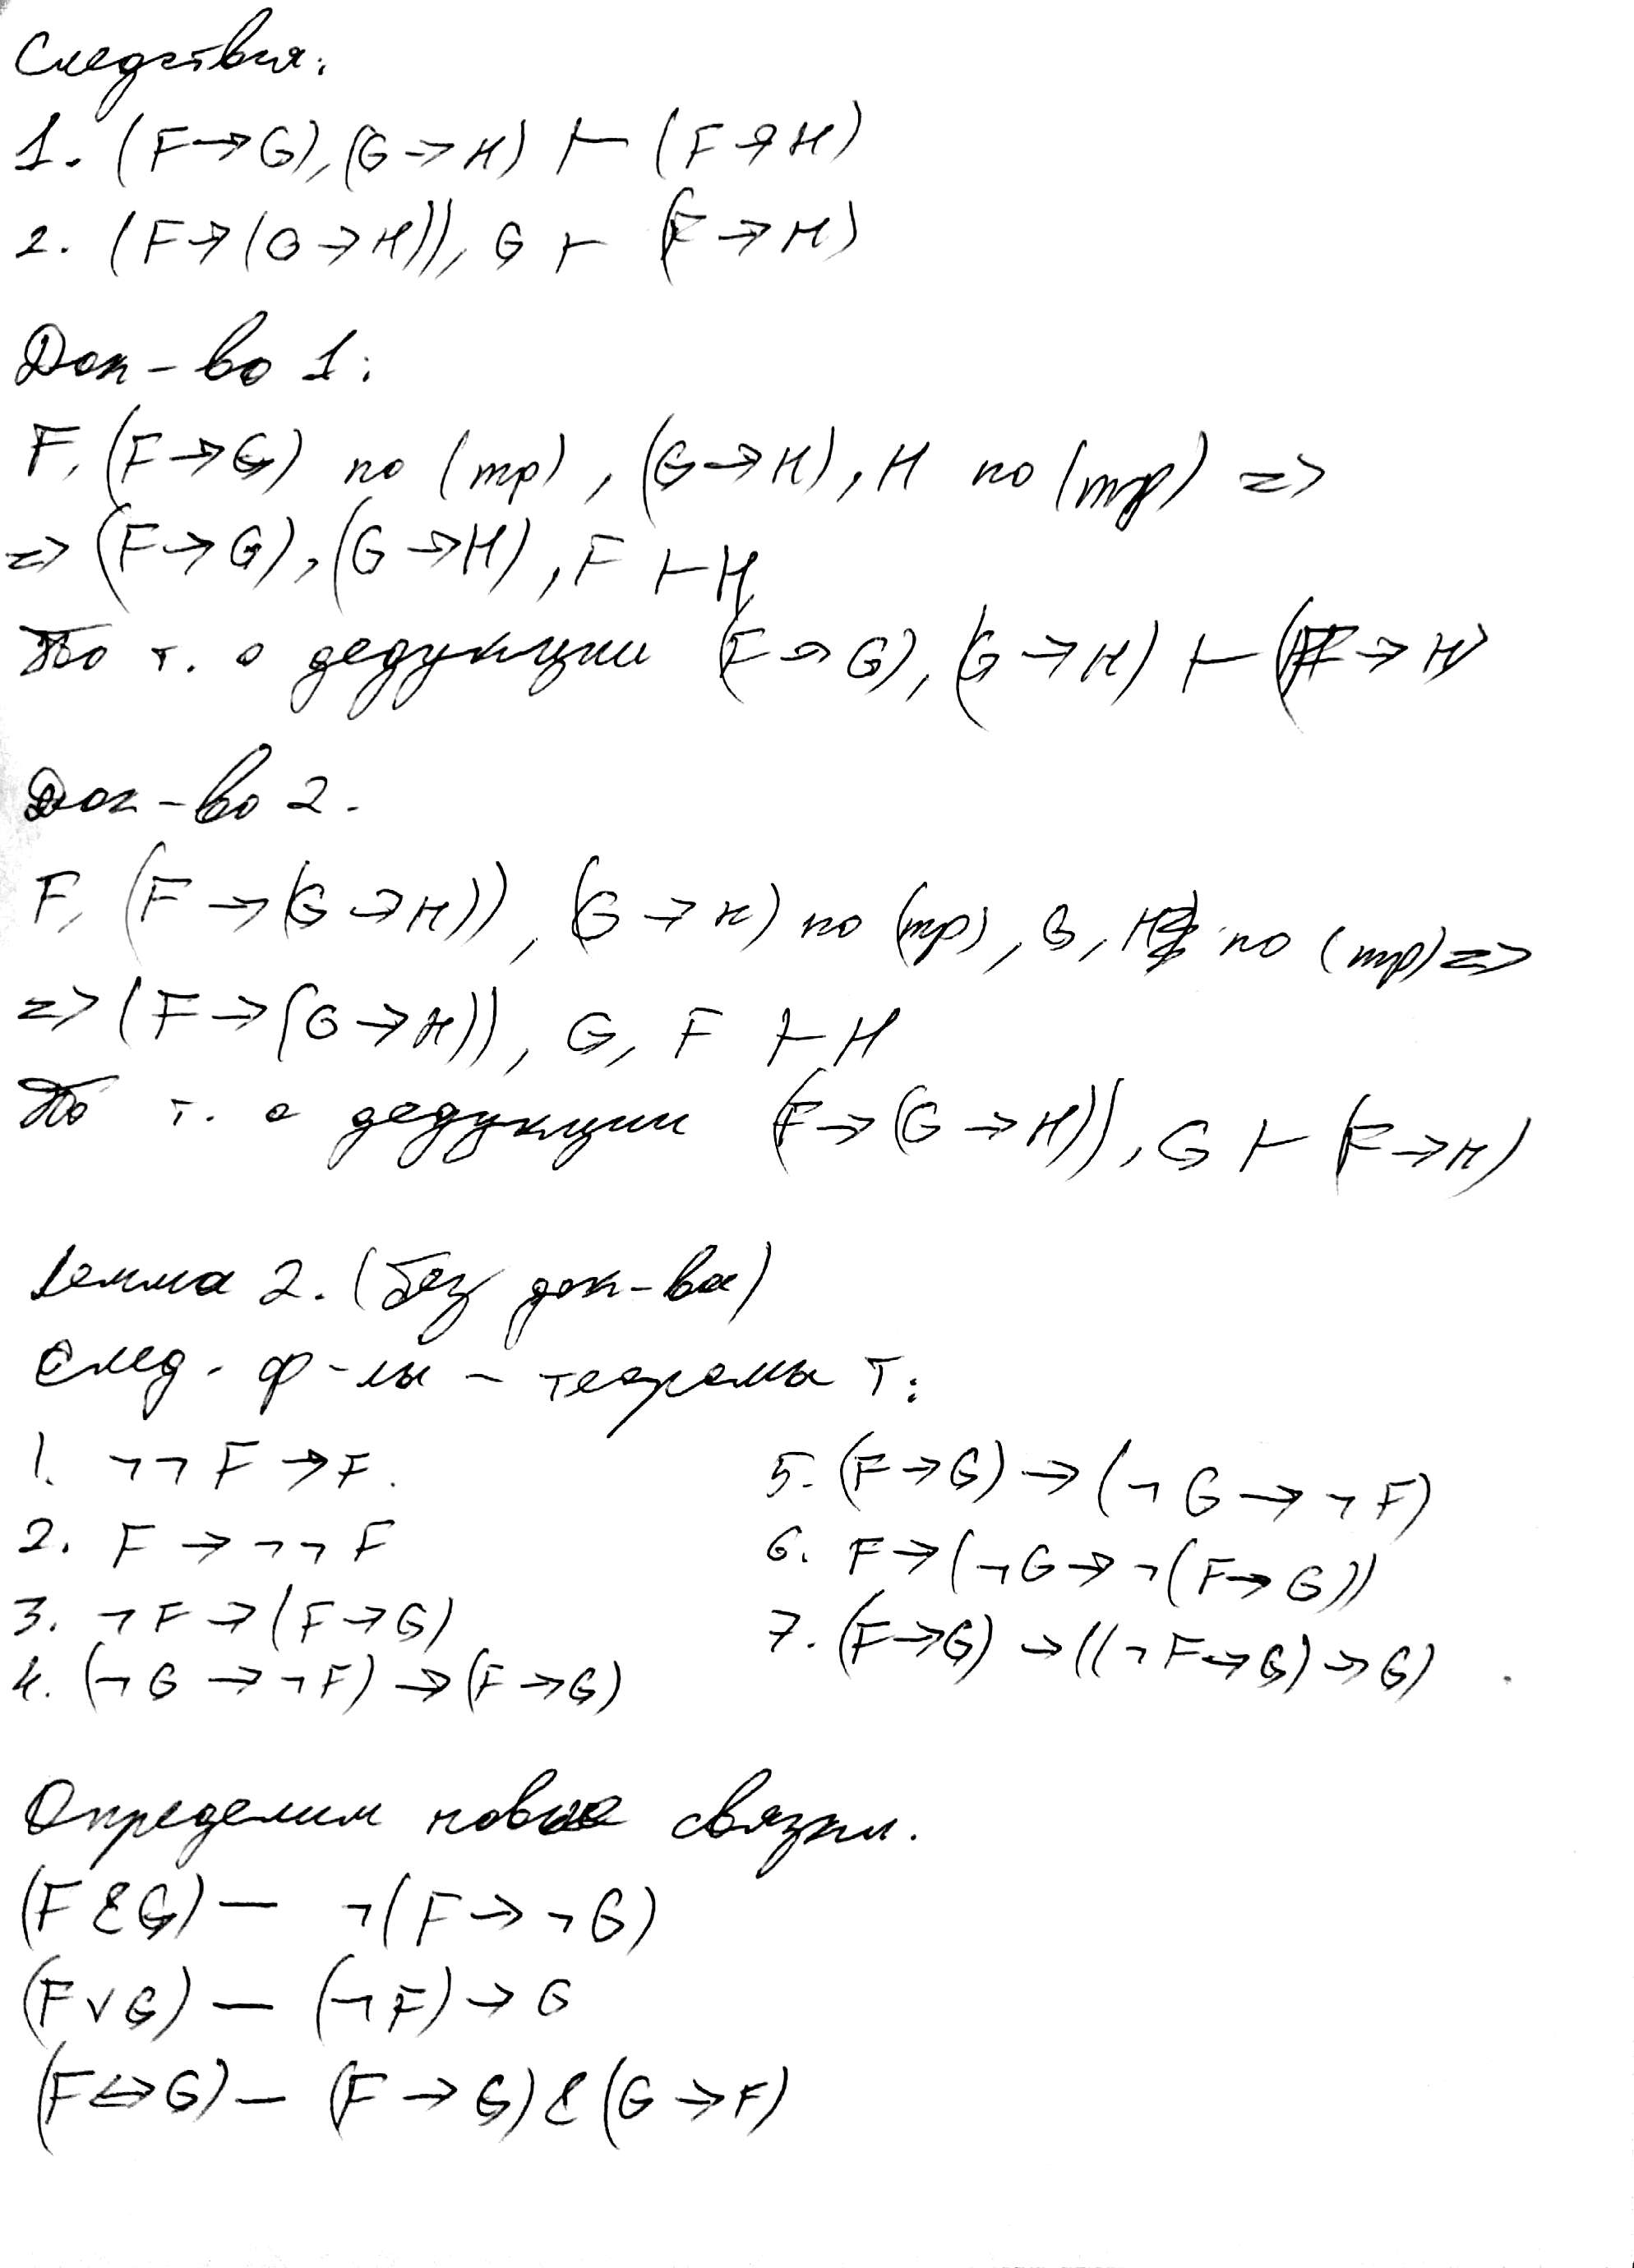 Следствия:
1. (F→G), (G→H) ⊢ (F→H)
2. (F→(G→H)), G ⊢ (F→H)
Док-во 1:
F, (F→G) по (mp), (G→H), H по (mp) =>
=> (F→G), (G→H), F ⊢ H
По т. о дедукции (F→G), (G→H) ⊢ (F→H)
Док-во 2.
F, (F→(G→H)), (G→H) по (mp), G, H по (mp) =>
=> (F→(G→H)), G, F ⊢ H
По т. о дедукции (F→(G→H)), G ⊢ (F→H)
Лемма 2. (без док-ва)
След. ф-лы - теоремы T:
1. ¬¬F→F.
2. F→¬¬F
3. ¬F→(F→G)
4. (¬G→¬F)→(F→G)
5. (F→G)→(¬G→¬F)
6. F→(¬G→¬(F→G))
7. (F→G)→((¬F→G)→G)
Определим новые связки.
(F&G) — ¬(F→¬G)
(F∨G) — (¬F)→G
(F⇔G) — (F→G)&(G→F)